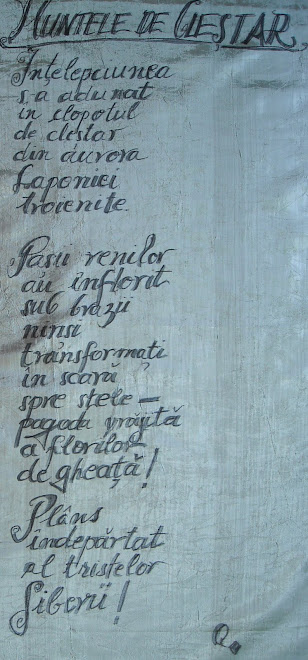 MUNTELE DE CLEȘTAR
Înțelepciunea
s-a adunat
în clopotul
de cleștar
din aurora
Laponiei
troienite.
Pașii renilor
au înflorit
sub brazii
ninși
transformați
în scară
spre stele –
pagoda vrăjită
a florilor
de gheață!
Plâns
îndepărtat
al tristelor
Siberii!